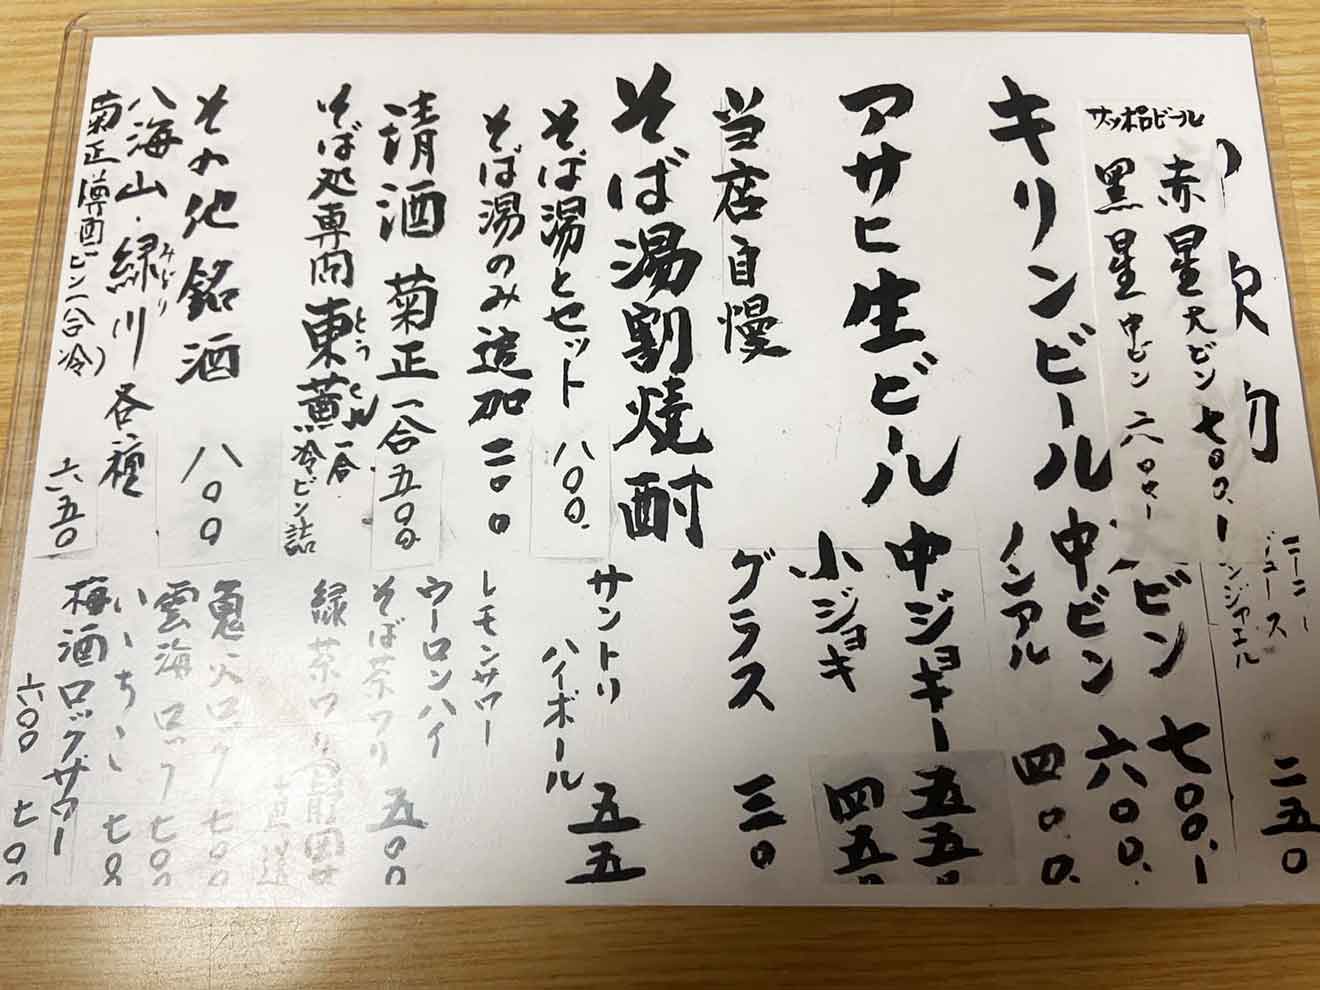 サッポロビール
赤星大ビン 七〇〇
黒星中ビン 六〇〇
キリンビール
ビン 七〇〇
中ビン 六〇〇
ノンアル 四〇〇
ジュース
二五〇
アサヒ生ビール
中ジョキー 五五
小ジョキ 四五
グラス 三〇
当店自慢
そば湯割焼酎
そば湯とセット 八〇〇
そば湯のみ追加 二〇〇
清酒 菊正 一合 五〇〇
そば処専門 東薫 一合
とうくん
冷ビン詰
その他銘酒 八〇〇
八海山・緑川 各種
みどり
菊正樽酒ビン一合冷) 六五〇
サントリ
ハイボール 五五
レモンサワー
ウーロンハイ
そば茶ワリ 五〇〇
緑茶ワリ
鬼火ロック 七〇〇
雲海ロック 七〇〇
いいちこ 七〇〇
梅酒ロックサワー 七〇〇
六〇〇